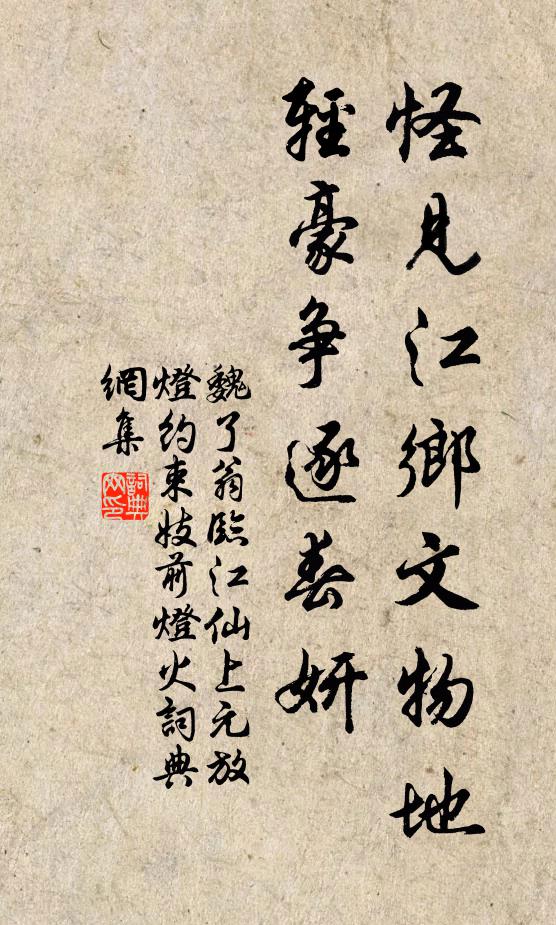 怪見江鄉文物地
輕豪爭逐春妍
魏了翁臨江仙上元放
燈約束妓前燈火詞典
網集
詞典網印